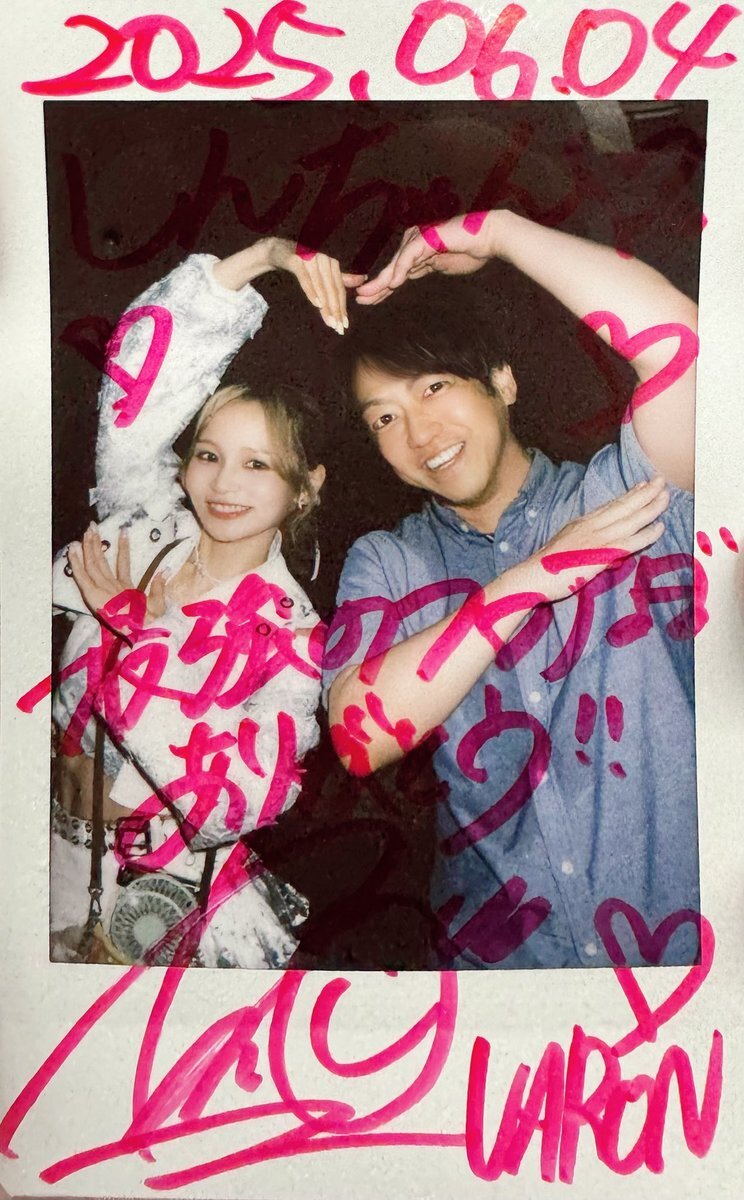 2025.06.04
しんちゃん♡
最強のフロア♬
ありがとう!!
VARON